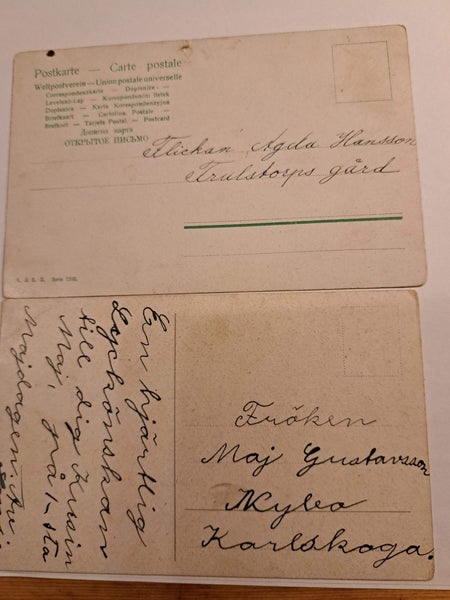 Postkarte — Carte postale
Weltpostverein — Union postale universelle
Correspondenzkarte — Dopisnice —
Levelező-Lap — Korrespondencni listek
Dopisnica — Karta Korespondencyjna
Briefkaart — Cartolina Postale —
Brefkort — Tarjeta Postal — Postcard
Дописна карта
ОТКРЫТОЕ ПИСЬМО
Flickan Agda Hansson
Trulstorps gård
Serie
En hjärtlig
Lyckönskan
till dig Kusin
Maj, på 1-sta
Majdagen
Fröken
Maj Gustavsson
Nybo
Karlskoga.